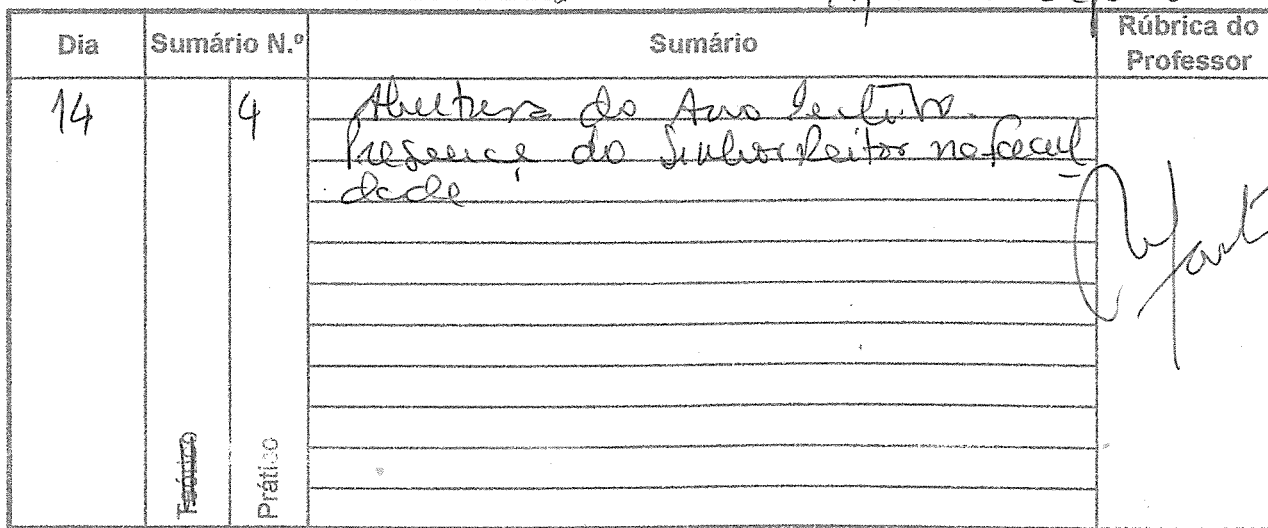 Dia Sumário N.º Sumário Rúbrica do Professor
14 4 Abertura do Ano Lectivo.
Presença do Senhor Reitor na facul
dade
Teórico Prático